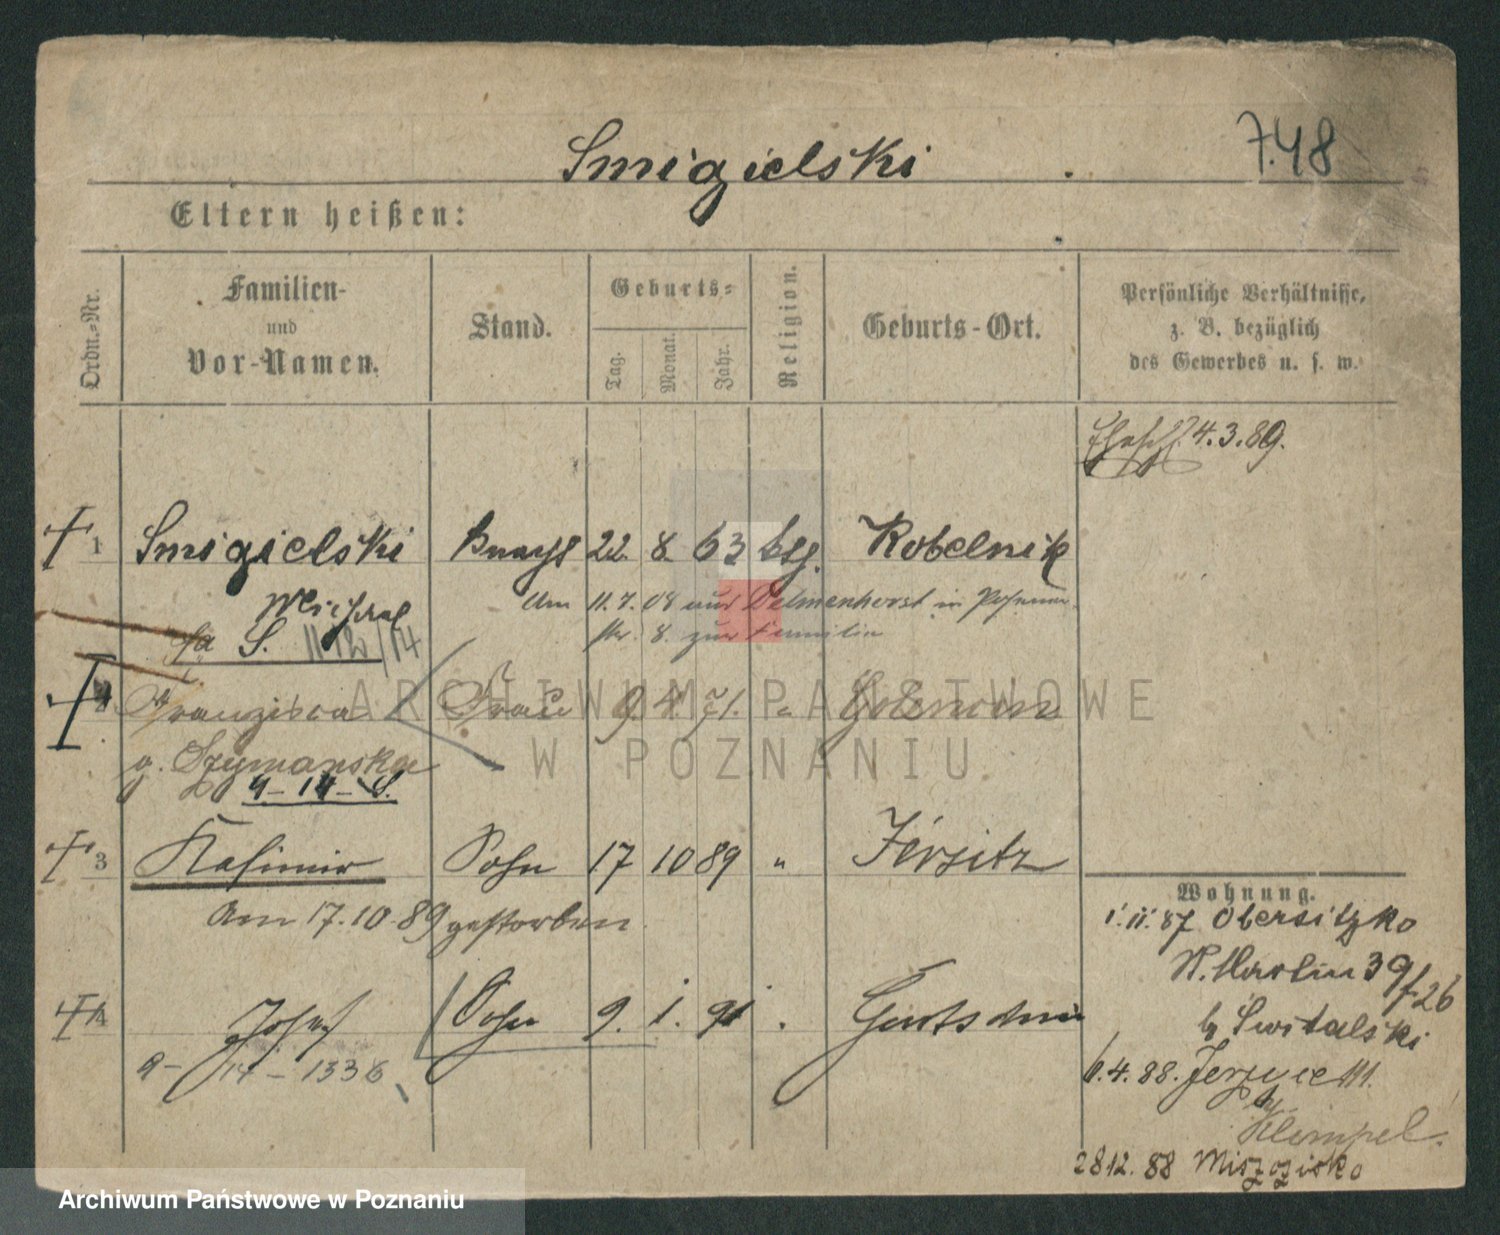 Smigielski
748
Eltern heißen:
Ordn.-Nr.
Familien-
und
Vor-Namen.
Stand.
Geburts-
Tag.
Monat.
Jahr.
Religion.
Geburts-Ort.
Persönliche Verhältnisse,
z. B. bezüglich
des Gewerbes u. s. w.
4.3.89.
1 Smigielski 22 8 63 Kobelnik
Am 11.7.08 aus Delmenhorst in
8. zur Familie
S.
2 Franziska Frau 9 4. 71.
g. Szymanska
9-14-S.
3 Kasimir Sohn 17 10 89 " Jersitz
Am 17.10.89 gestorben
4 Josef Sohn 9. 1. 91
9-14-1336
Wohnung.
1.11.87 Obersitzko
St. Martin 39/26
b. Switalski
6.4.88. Jerzyce 111.
by
Klempel.
28 12. 88 Miszczisko
ARCHIWUM PAŃSTWOWE
W POZNANIU
Archiwum Państwowe w Poznaniu